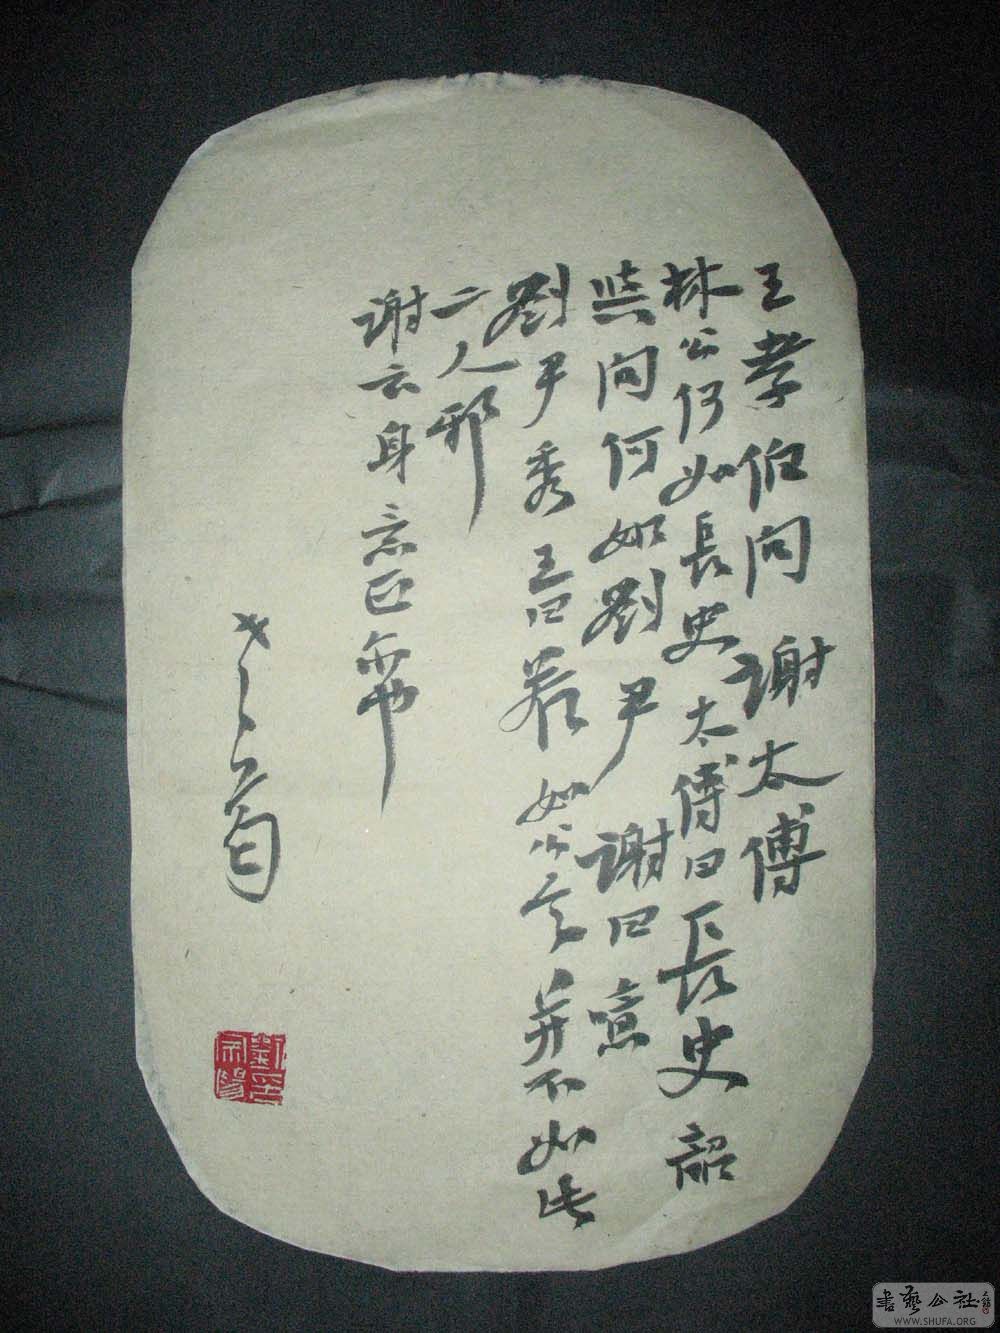 王孝伯問謝太傅
林公何如長史太傅曰長史韶
興問何如劉尹謝曰噫
劉尹秀王曰若如公言并不如此
二人邪
謝云身意正尔也
書藝公社
WWW.SHUFA.ORG